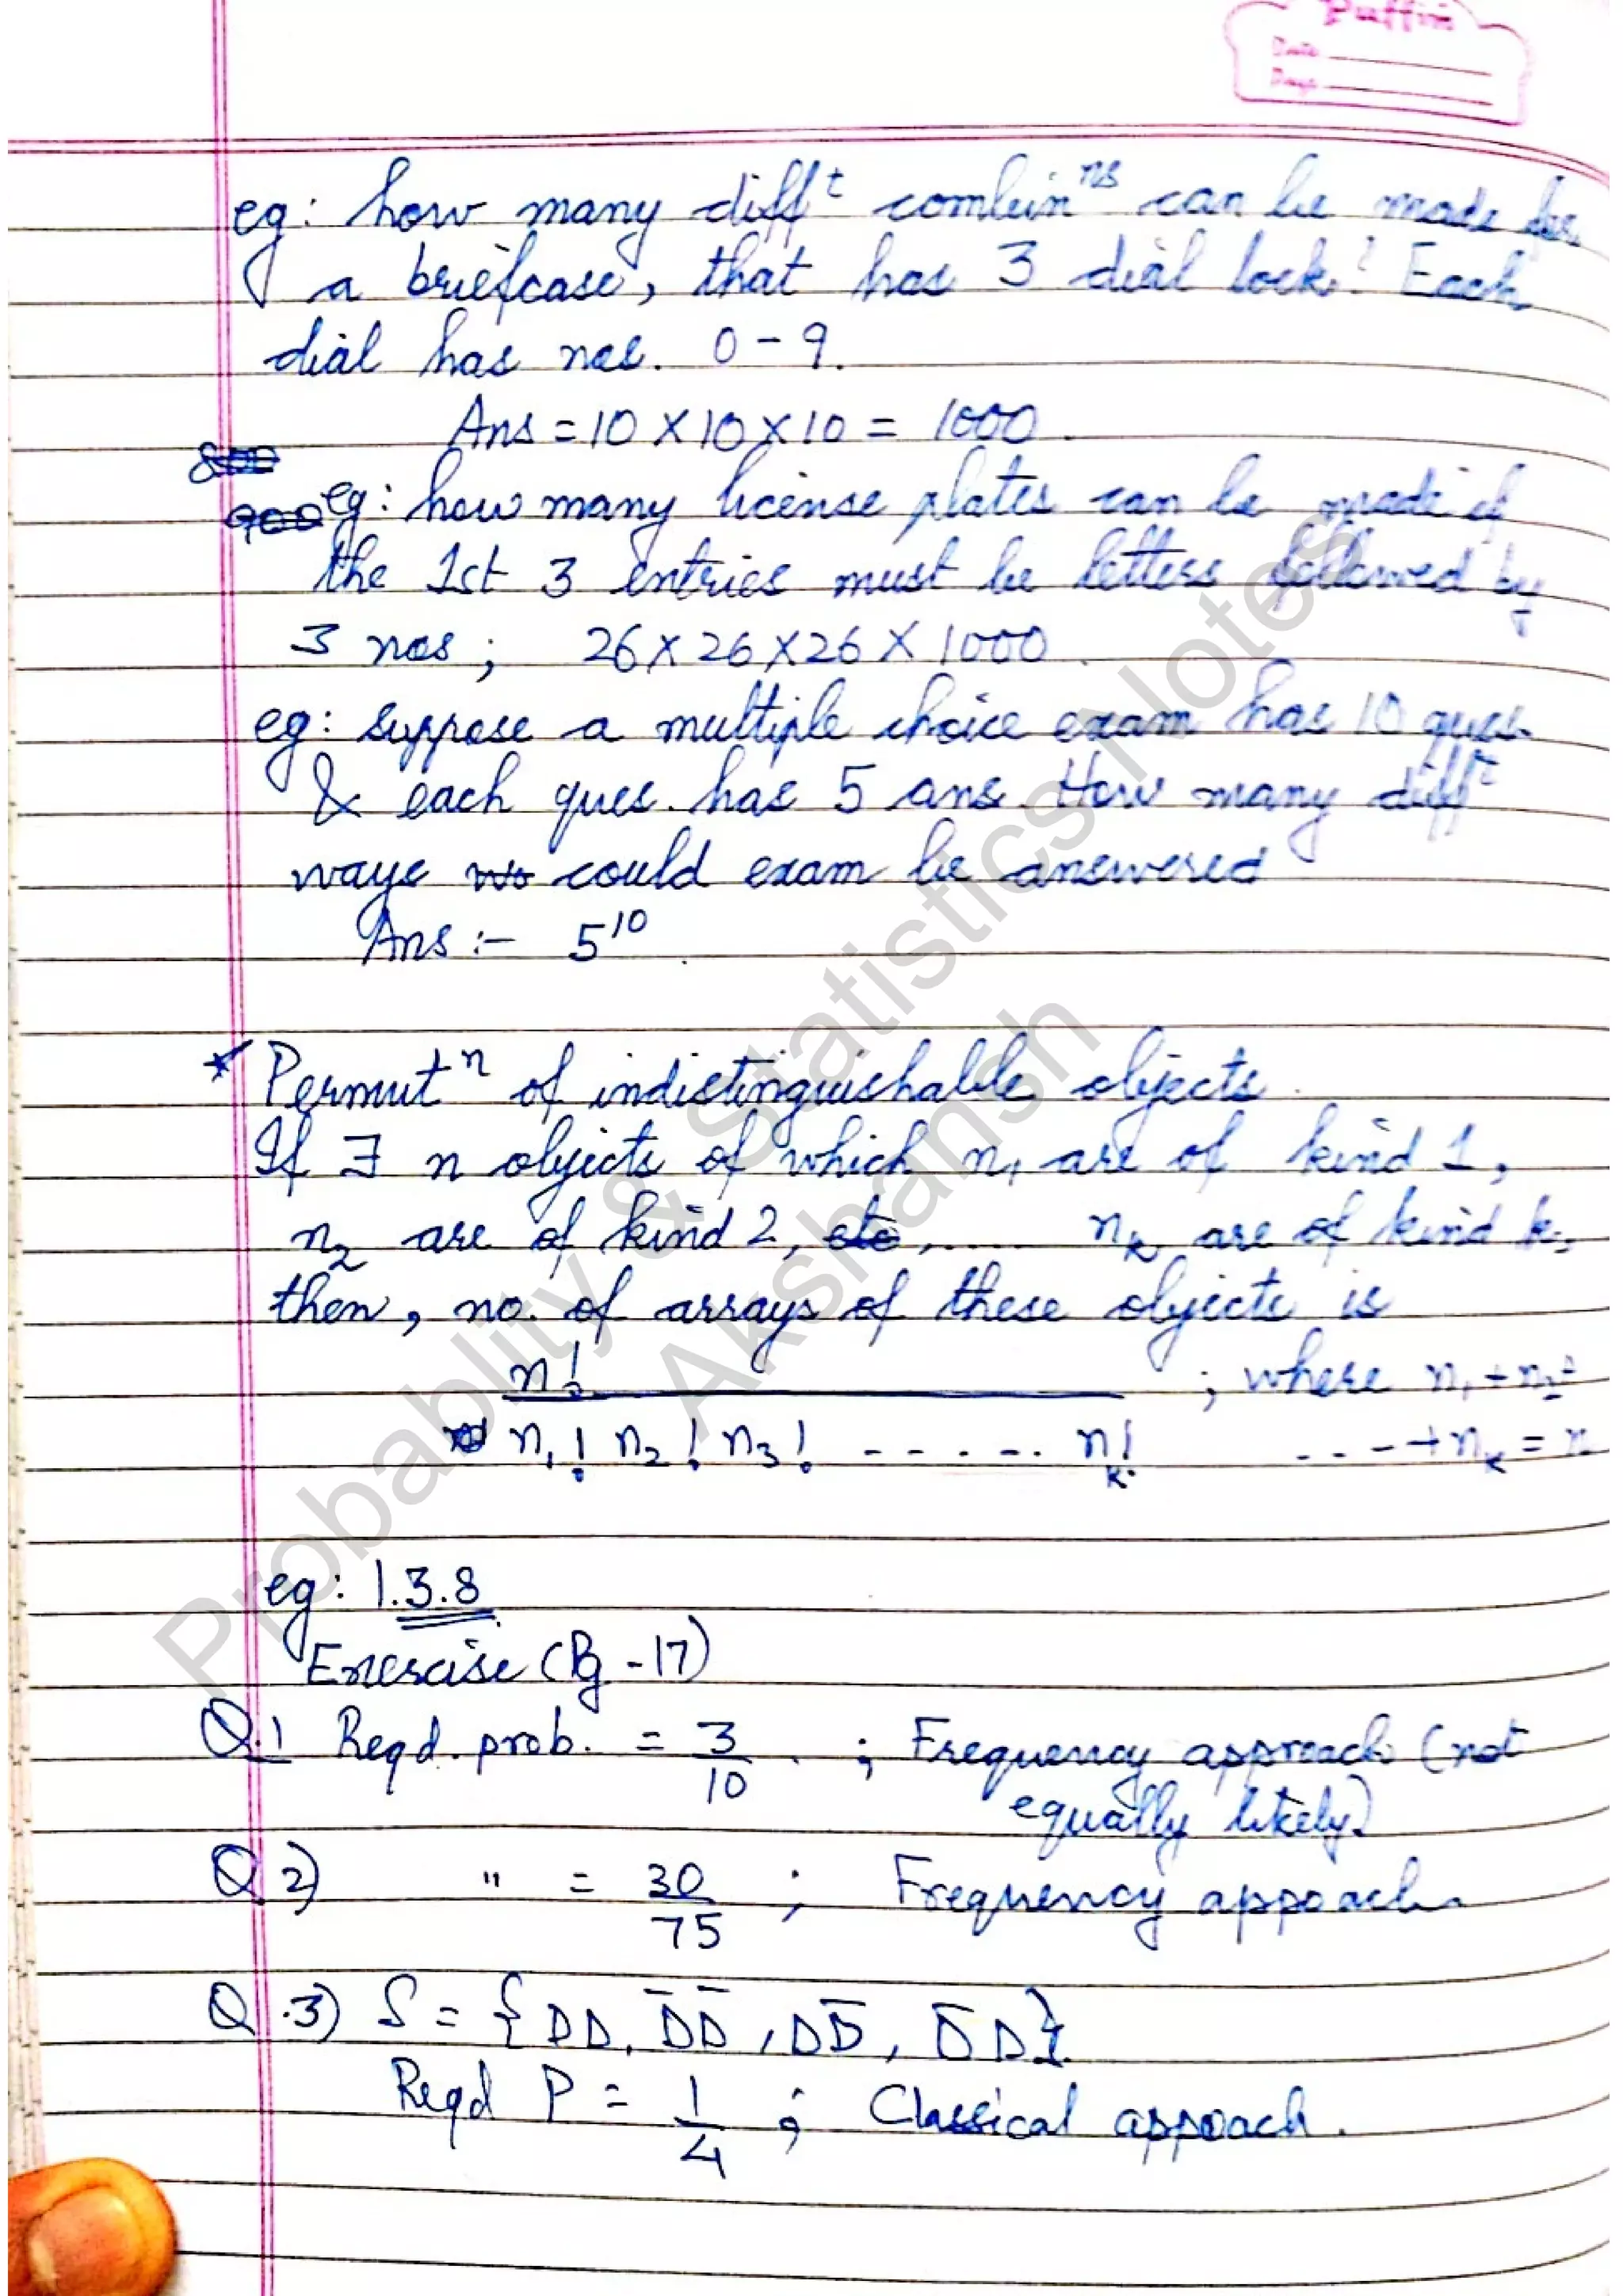 Puffin
Date
Page
eg: how many diff^t combin^ns can be made for
a briefcase, that has 3 dial lock? Each
dial has nos. 0-9.
Ans = 10 X 10 X 10 = 1000.
800
900 eg: how many license plates can be made if
the 1st 3 entries must be letters followed by
3 nos; 26 X 26 X 26 X 1000.
eg: suppose a multiple choice exam has 10 ques.
& each ques. has 5 ans. How many diff^t
ways could exam be answered
Ans :- 5^10.
* Permut^n of indistinguishable objects.
If ∃ n objects of which n₁ are of kind 1,
n₂ are of kind 2, etc, ...... nₖ are of kind k,
then, no. of arrays of these objects is
n! ; where n₁ + n₂ +
n₁! n₂! n₃! ------ nₖ! ---+ nₖ = n
eg: 1.3.8
Exercise (Pg - 17)
Q.1 Reqd. prob. = 3/10. ; Frequency approach (not
equally likely)
Q 2) " = 30/75 ; Frequency appoach
Q.3) S = {DD, D̄D̄, DD̄, D̄D}
Reqd P = 1/4 ; Classical appoach.
Probablity & Statistics Notes
Akshansh